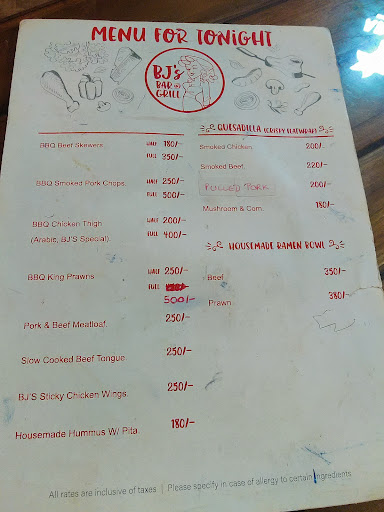 MENU FOR TONIGHT
BJ's
BAR &
GRILL
BBQ Beef Skewers. HALF 180/-
FULL 350/-
BBQ Smoked Pork Chops. HALF 250/-
FULL 500/-
BBQ Chicken Thigh HALF 200/-
(Arabis, BJ'S Special). FULL 400/-
BBQ King Prawns HALF 250/-
FULL
500/-
Pork & Beef Meatloaf. 250/-
Slow Cooked Beef Tongue. 250/-
BJ'S Sticky Chicken Wings. 250/-
Housemade Hummus W/ Pita. 180/-
QUESADILLA (CRISPY FLATWRAP)
Smoked Chicken. 200/-
Smoked Beef. 220/-
PULLED PORK 200/-
Mushroom & Corn. 180/-
HOUSEMADE RAMEN BOWL
Beef 350/-
Prawn. 380/-
All rates are inclusive of taxes | Please specify in case of allergy to certain ingredients